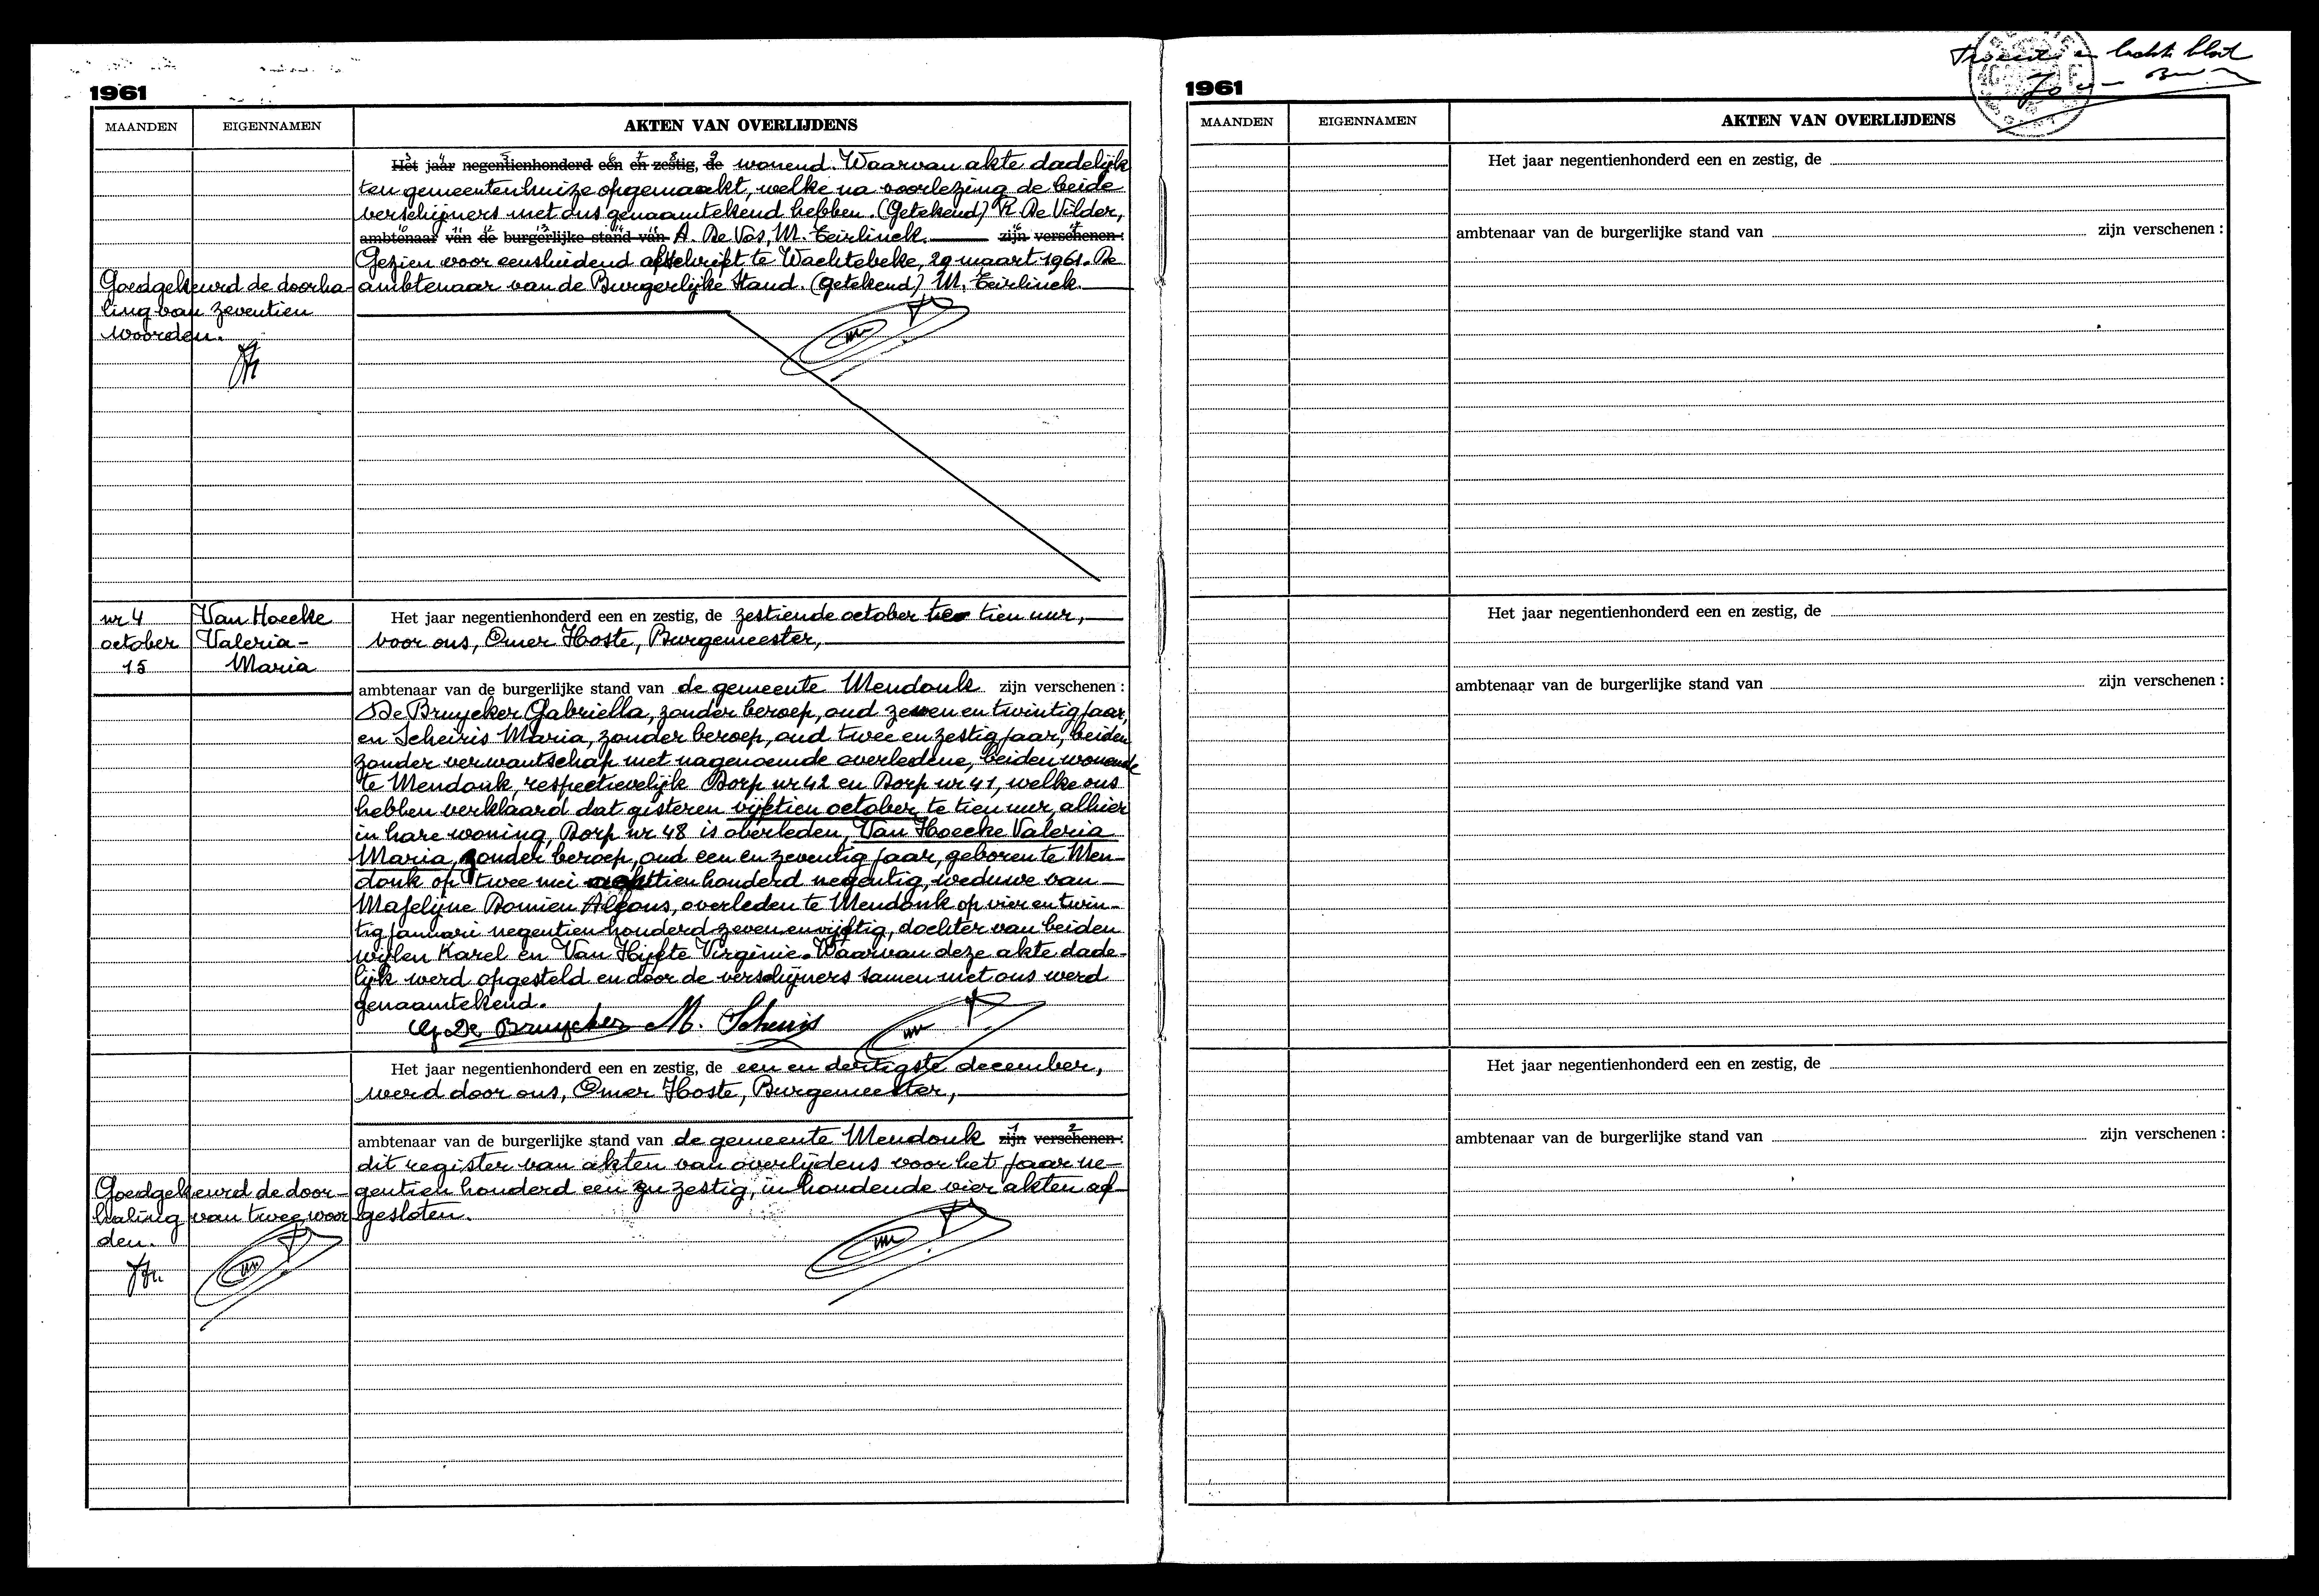 1961
MAANDEN EIGENNAMEN AKTEN VAN OVERLIJDENS
Het jaar negentienhonderd een en zestig, de wonend. Waarvan akte dadelijk
ten gemeentenhuize opgemaakt, welke na voorlezing de beide
verschijners met ons genaamtekend hebben. (Getekend) R. De Vilder,
ambtenaar van de burgerlijke stand van A. De Vos, M. Teirlinck. zijn verschenen:
Gezien voor eensluidend afschrift te Wachtebeke, 29 maart 1961. De
ambtenaar van de Burgerlijke Stand. (getekend) M. Teirlinck.
Goedgekeurd de doorha-
ling van zeventien
woorden.
nr 4 Van Hoecke
october Valeria-
15 Maria
Het jaar negentienhonderd een en zestig, de zestiende october te tien uur,
voor ons, Omer Hoste, Burgemeester,
ambtenaar van de burgerlijke stand van de gemeente Mendonk zijn verschenen:
De Bruycker Gabriella, zonder beroep, oud zeven en twintig jaar,
en Scheiris Maria, zonder beroep, oud twee en zestig jaar, beiden
zonder verwantschap met nagenoemde overledene, beiden wonende
te Mendonk, respectievelijk Dorp nr 42 en Dorp nr 41, welke ons
hebben verklaard dat gisteren vijftien october, te tien uur, alhier
in hare woning, Dorp nr 48 is overleden, Van Hoecke Valeria
Maria, zonder beroep, oud een en zeventig jaar, geboren te Men-
donk op twee mei achttien honderd negentig, weduwe van
Maselyne Domien Alfons, overleden te Mendonk op vier en twin-
tig januari negentien honderd zeven en vijftig, dochter van beiden
wijlen Karel en Van Hijfte Virginie. Waarvan deze akte dade-
lijk werd opgesteld en door de verschijners samen met ons werd
genaamtekend.
G. De Bruycker M. Scheiris
Het jaar negentienhonderd een en zestig, de een en dertigste december,
werd door ons, Omer Hoste, Burgemeester,
ambtenaar van de burgerlijke stand van de gemeente Mendonk zijn verschenen:
dit register van akten van overlijdens voor het jaar ne-
gentien honderd een en zestig, inhoudende vier akten af-
gesloten.
Goedgekeurd de door-
haling van twee woor
den.
1961
MAANDEN EIGENNAMEN AKTEN VAN OVERLIJDENS
Het jaar negentienhonderd een en zestig, de
ambtenaar van de burgerlijke stand van zijn verschenen:
Het jaar negentienhonderd een en zestig, de
ambtenaar van de burgerlijke stand van zijn verschenen:
Het jaar negentienhonderd een en zestig, de
ambtenaar van de burgerlijke stand van zijn verschenen: